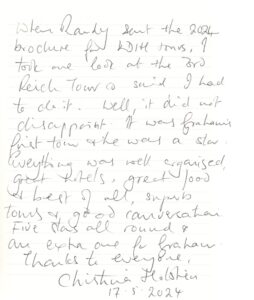 When Randy sent the 2024
brochure for LDHH tours, I
took one look at the 3rd
Reich Tour & said I had
to do it. Well, it did not
disappoint. It was Graham's
first tour & he was a star.
Everything was well organised,
great hotels, great food
& best of all, superb
tours & good conversation
Five stars all round &
an extra one for Graham.
Thanks to everyone,
Christina Holstein
17.5.2024